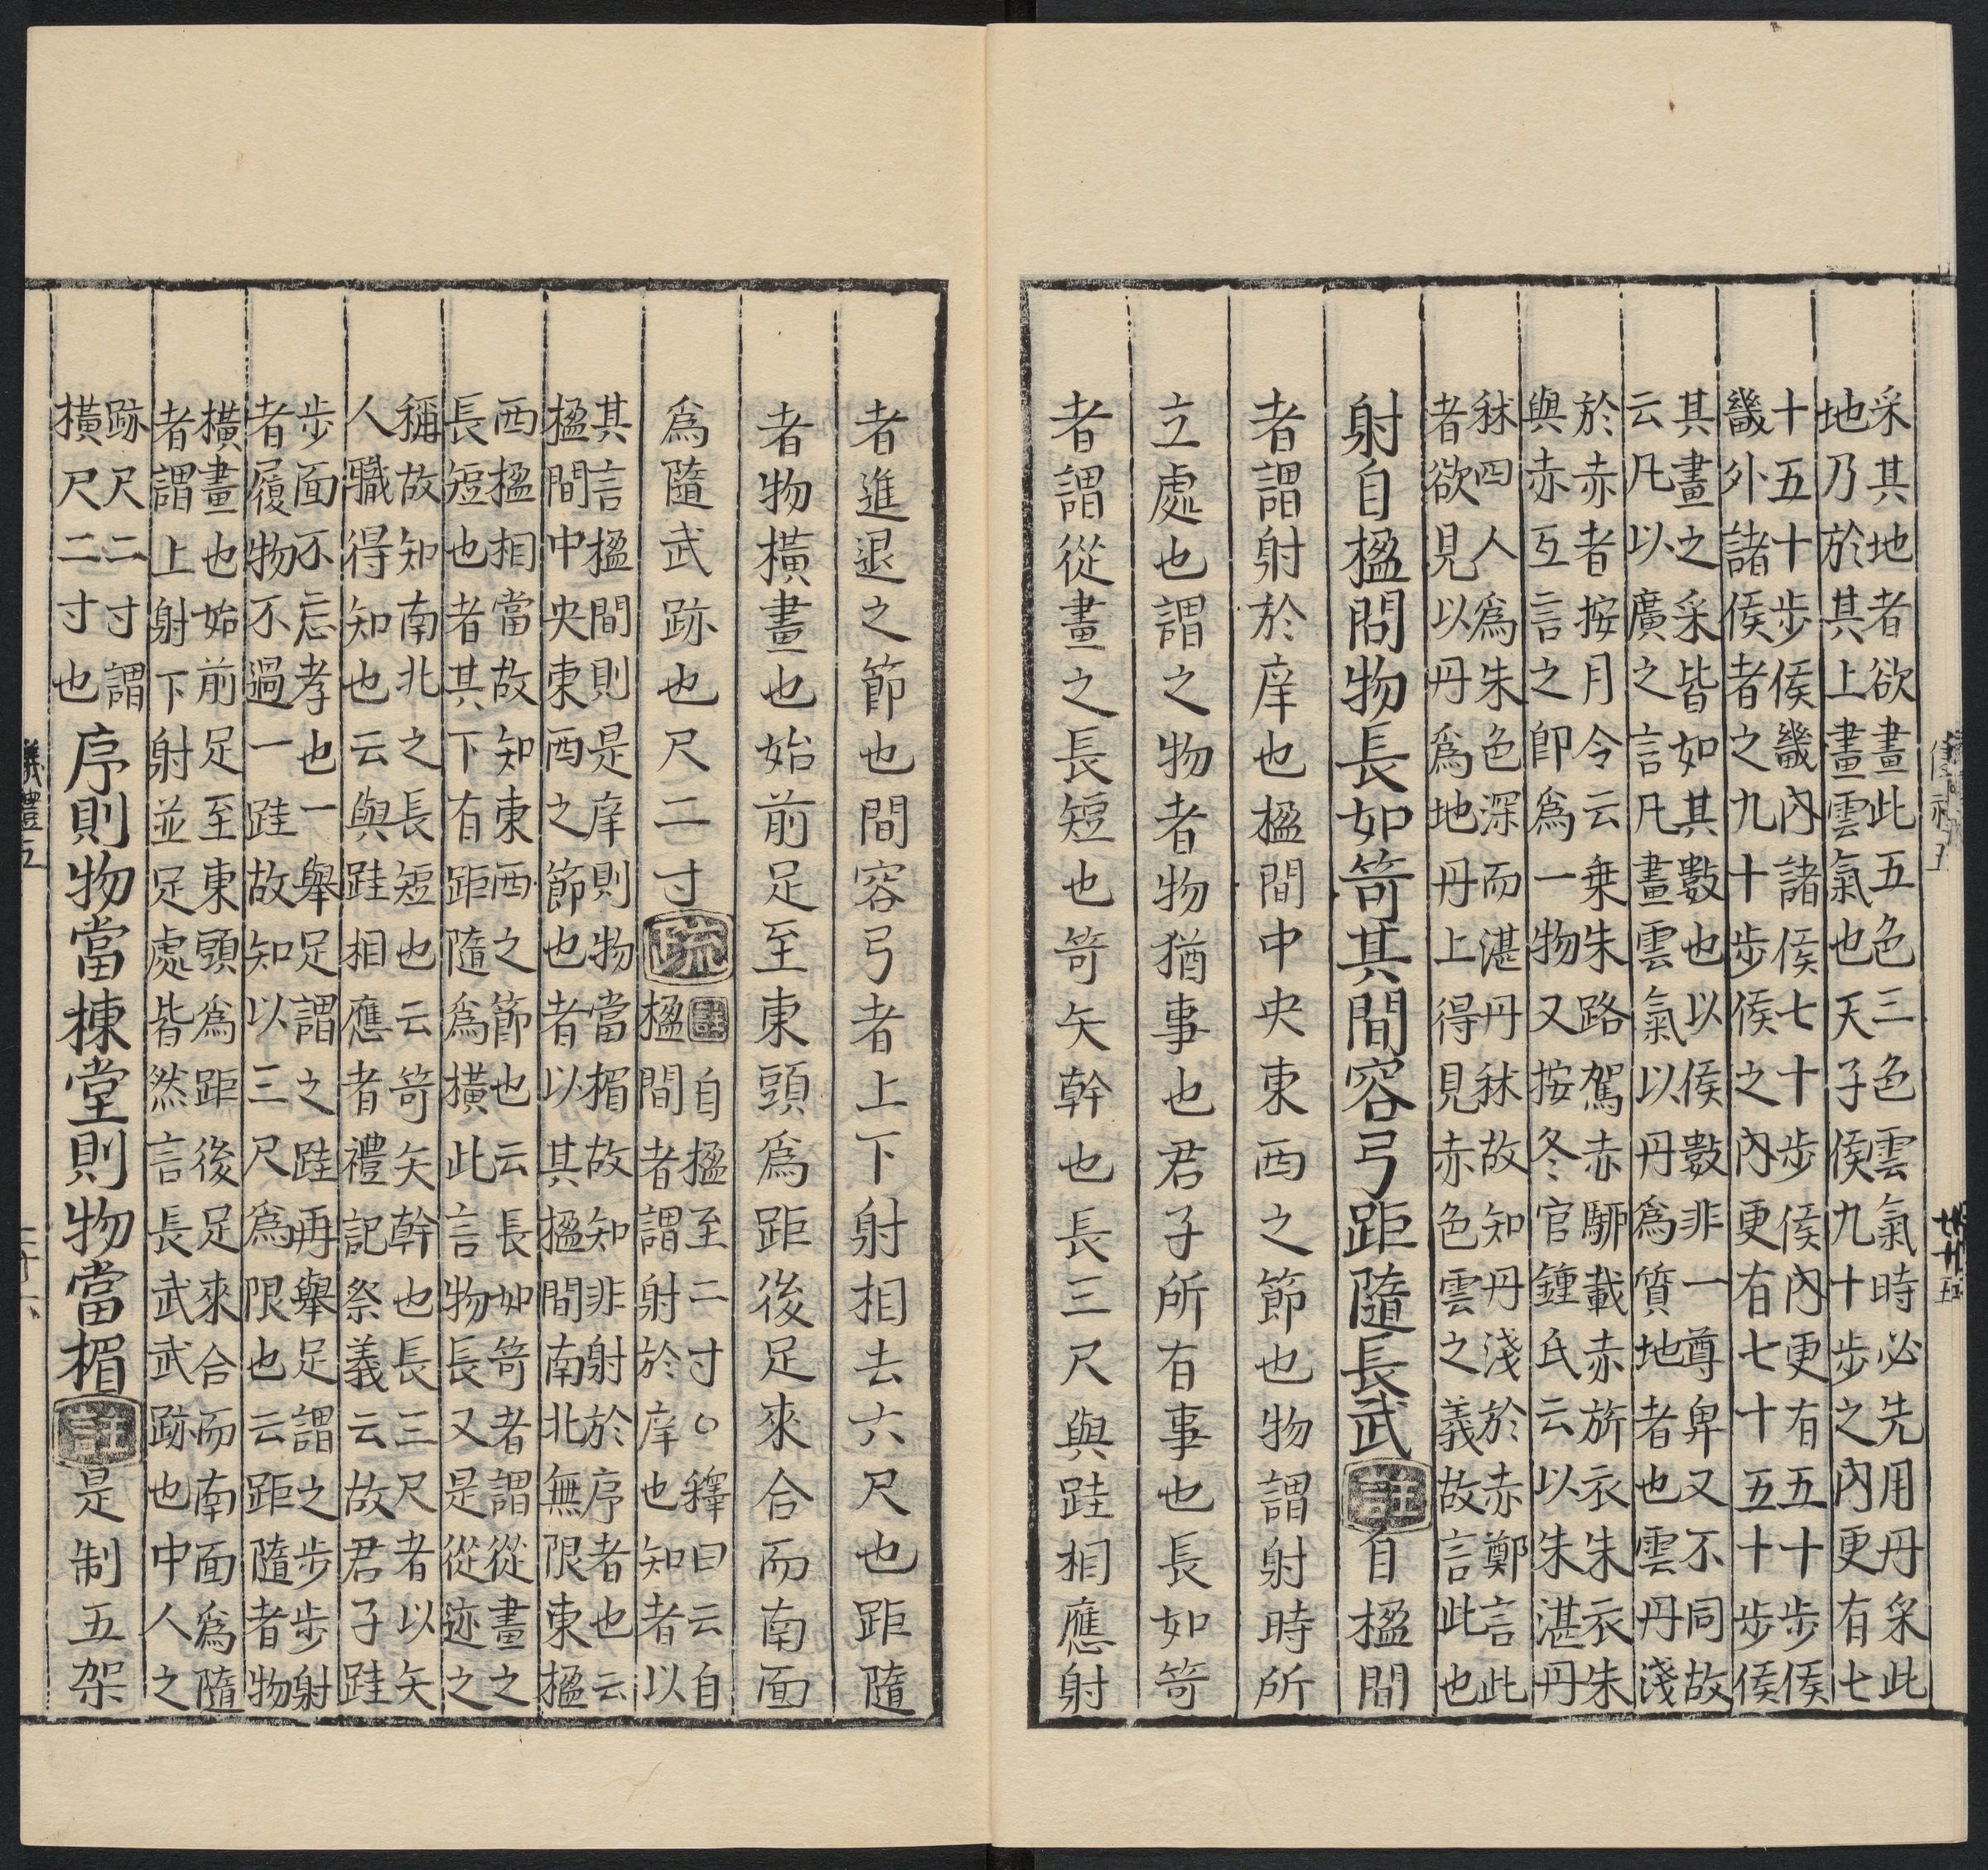 采其地者欲畫此五色三色雲氣時必先用丹采此
地乃於其上畫雲氣也天子侯九十步之內更有七
十五十步侯畿內諸侯七十步侯內更有五十步侯
畿外諸侯者之九十步侯之內更有七十五十步侯
其畫之采皆如其數也以侯數非一尊卑又不同故
云凡以廣之言凡畫雲氣以丹爲質地者也雲丹淺
於赤者按月令云乗朱路駕赤駵載赤旂衣朱衣朱
與赤互言之卽爲一物又按冬官鍾氏云以朱湛丹
秫四人爲朱色深而湛丹秫故知丹淺於赤鄭言此
者欲見以丹爲地丹上得見赤色雲之義故言此也
射自楹間物長如笴其間容弓距隨長武註自楹間
者謂射於庠也楹間中央東西之節也物謂射時所
立處也謂之物者物猶事也君子所有事也長如笴
者謂從畫之長短也笴矢幹也長三尺與跬相應射
者進退之節也間容弓者上下射相去六尺也距隨
者物橫畫也始前足至東頭爲距後足來合而南面
爲隨武跡也尺二寸疏註自楹至二寸○釋曰云自
楹間者謂射於庠也知者以
其言楹間則是庠則物當楣故知非射於序者也云
楹間中央東西之節也者以其楹間南北無限東楹
西楹相當故知東西之節也云長如笴者謂從畫之
長短也者其下有距隨爲橫此言物長又是從迹之
稱故知南北之長短也云笴矢幹也長三尺者以矢
人職得知也云與跬相應者禮記祭義云故君子跬
步而不忘孝也一舉足謂之跬再舉足謂之步步射
者履物不過一跬故知以三尺爲限也云距隨者物
橫畫也始前足至東頭爲距後足來合而南面爲隨
者謂上射下射並足處皆然言長武武跡也中人之
跡尺二寸謂
橫尺二寸也序則物當棟堂則物當楣註是制五架
儀禮五
二十六